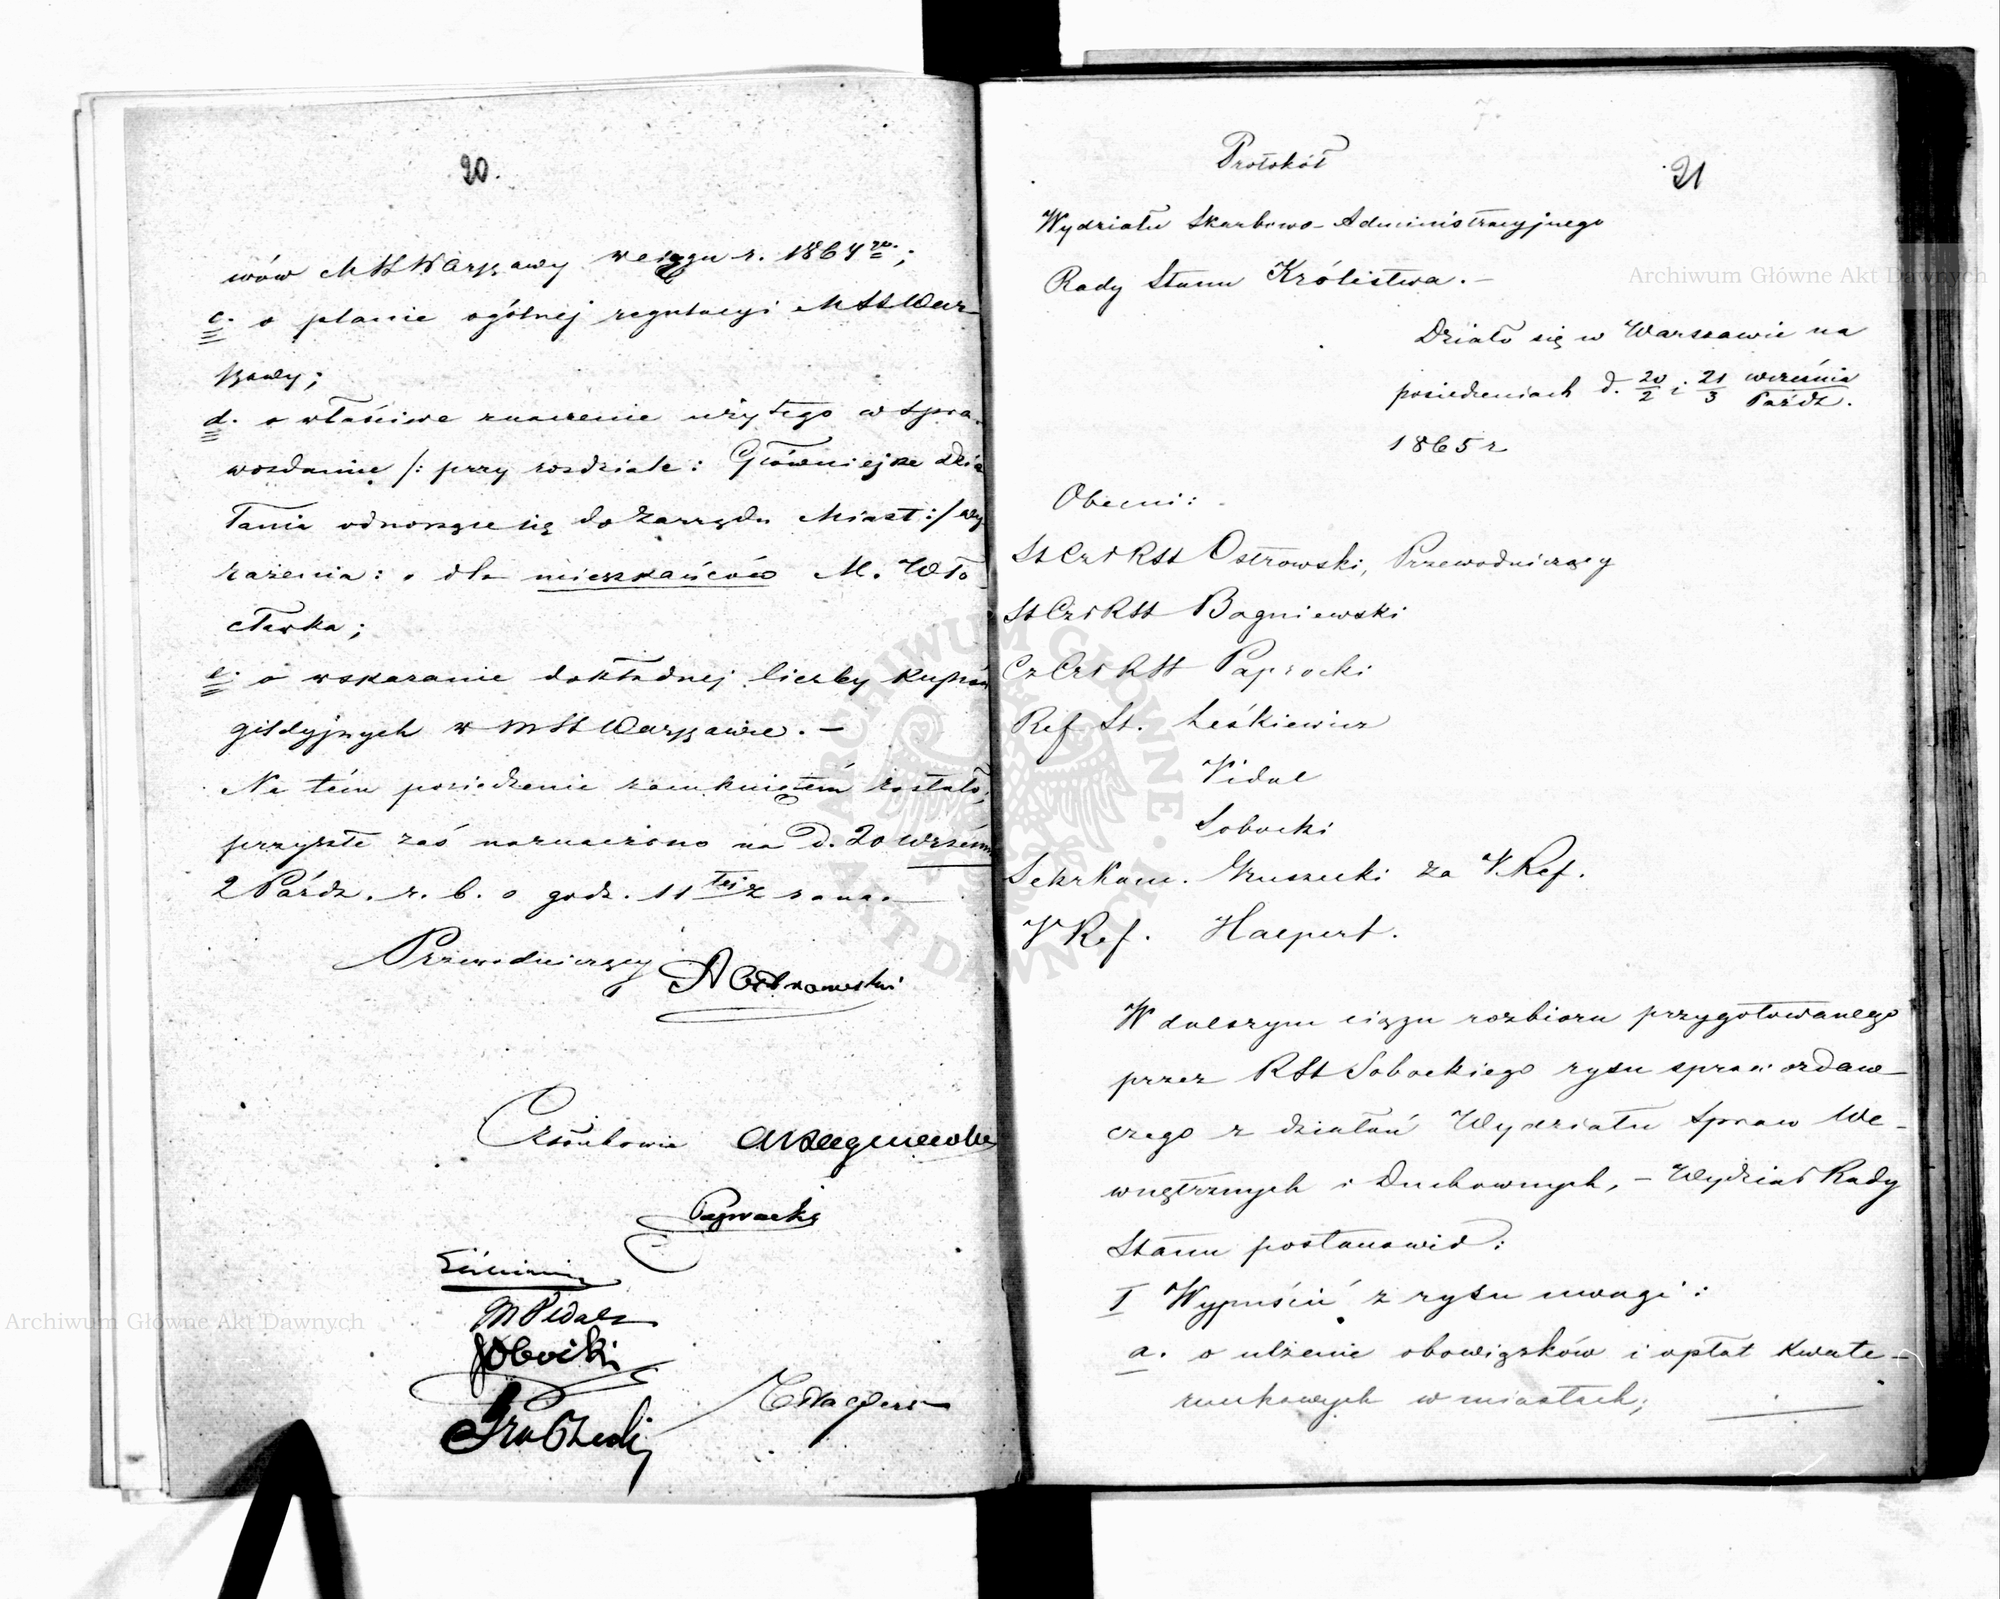 20.
wów MStWarszawy w ciągu r. 1864 go;
c. o planie ogólnej regulacyi MStWar-
szawy;
d. o właściwe znaczenie użytego w spra-
wozdaniu /: przy rozdziale: Główniejsze dzia
łania odnoszące się do Zarządu Miast :/ wy
rażenia: „ dla mieszkańców M. Wło-
cławka;
e. o wskazanie dokładnej liczby kupców
gildyjnych w MSt Warszawie. —
Na tém posiedzenie zamkniętém zostało,
przyszłe zaś naznaczono na d. 20 Wrześni
2 Paźdz. r. b. o godz. 11 tej z rana.
Przewodniczący A Ostrowski
Członkowie
Paprocki
M Vidal
Sobocki
Gruszecki
Halpert
21
Protokół
Wydziału Skarbowo-Administracyjnego
Rady Stanu Królestwa. —
Działo się w Warszawie na
posiedzeniach d. 20/2 i 21/3 września/Paźdz.
1865 r
Obecni:
StCzłRSt Ostrowski, Przewodniczący
StCzłRSt Bagniewski
CzCzłRSt Paprocki
Ref St. Leśkiewicz
Vidal
Sobocki
SekrKom. Gruszecki za V.Ref.
V Ref. Halpert.
W dalszym ciągu rozbioru przygotowanego
przez RSt Sobockiego rysu sprawozdaw-
czego z działań Wydziału Spraw We-
wnętrznych i Duchownych, — Wydział Rady
Stanu postanowił:
I Wypuścić z rysu uwagi:
a. o ulżenie obowiązków i opłat kwate-
runkowych w miastach;
Archiwum Główne Akt Dawnych
Archiwum Główne Akt Dawnych
ARCHIWUM GŁÓWNE AKT DAWNYCH